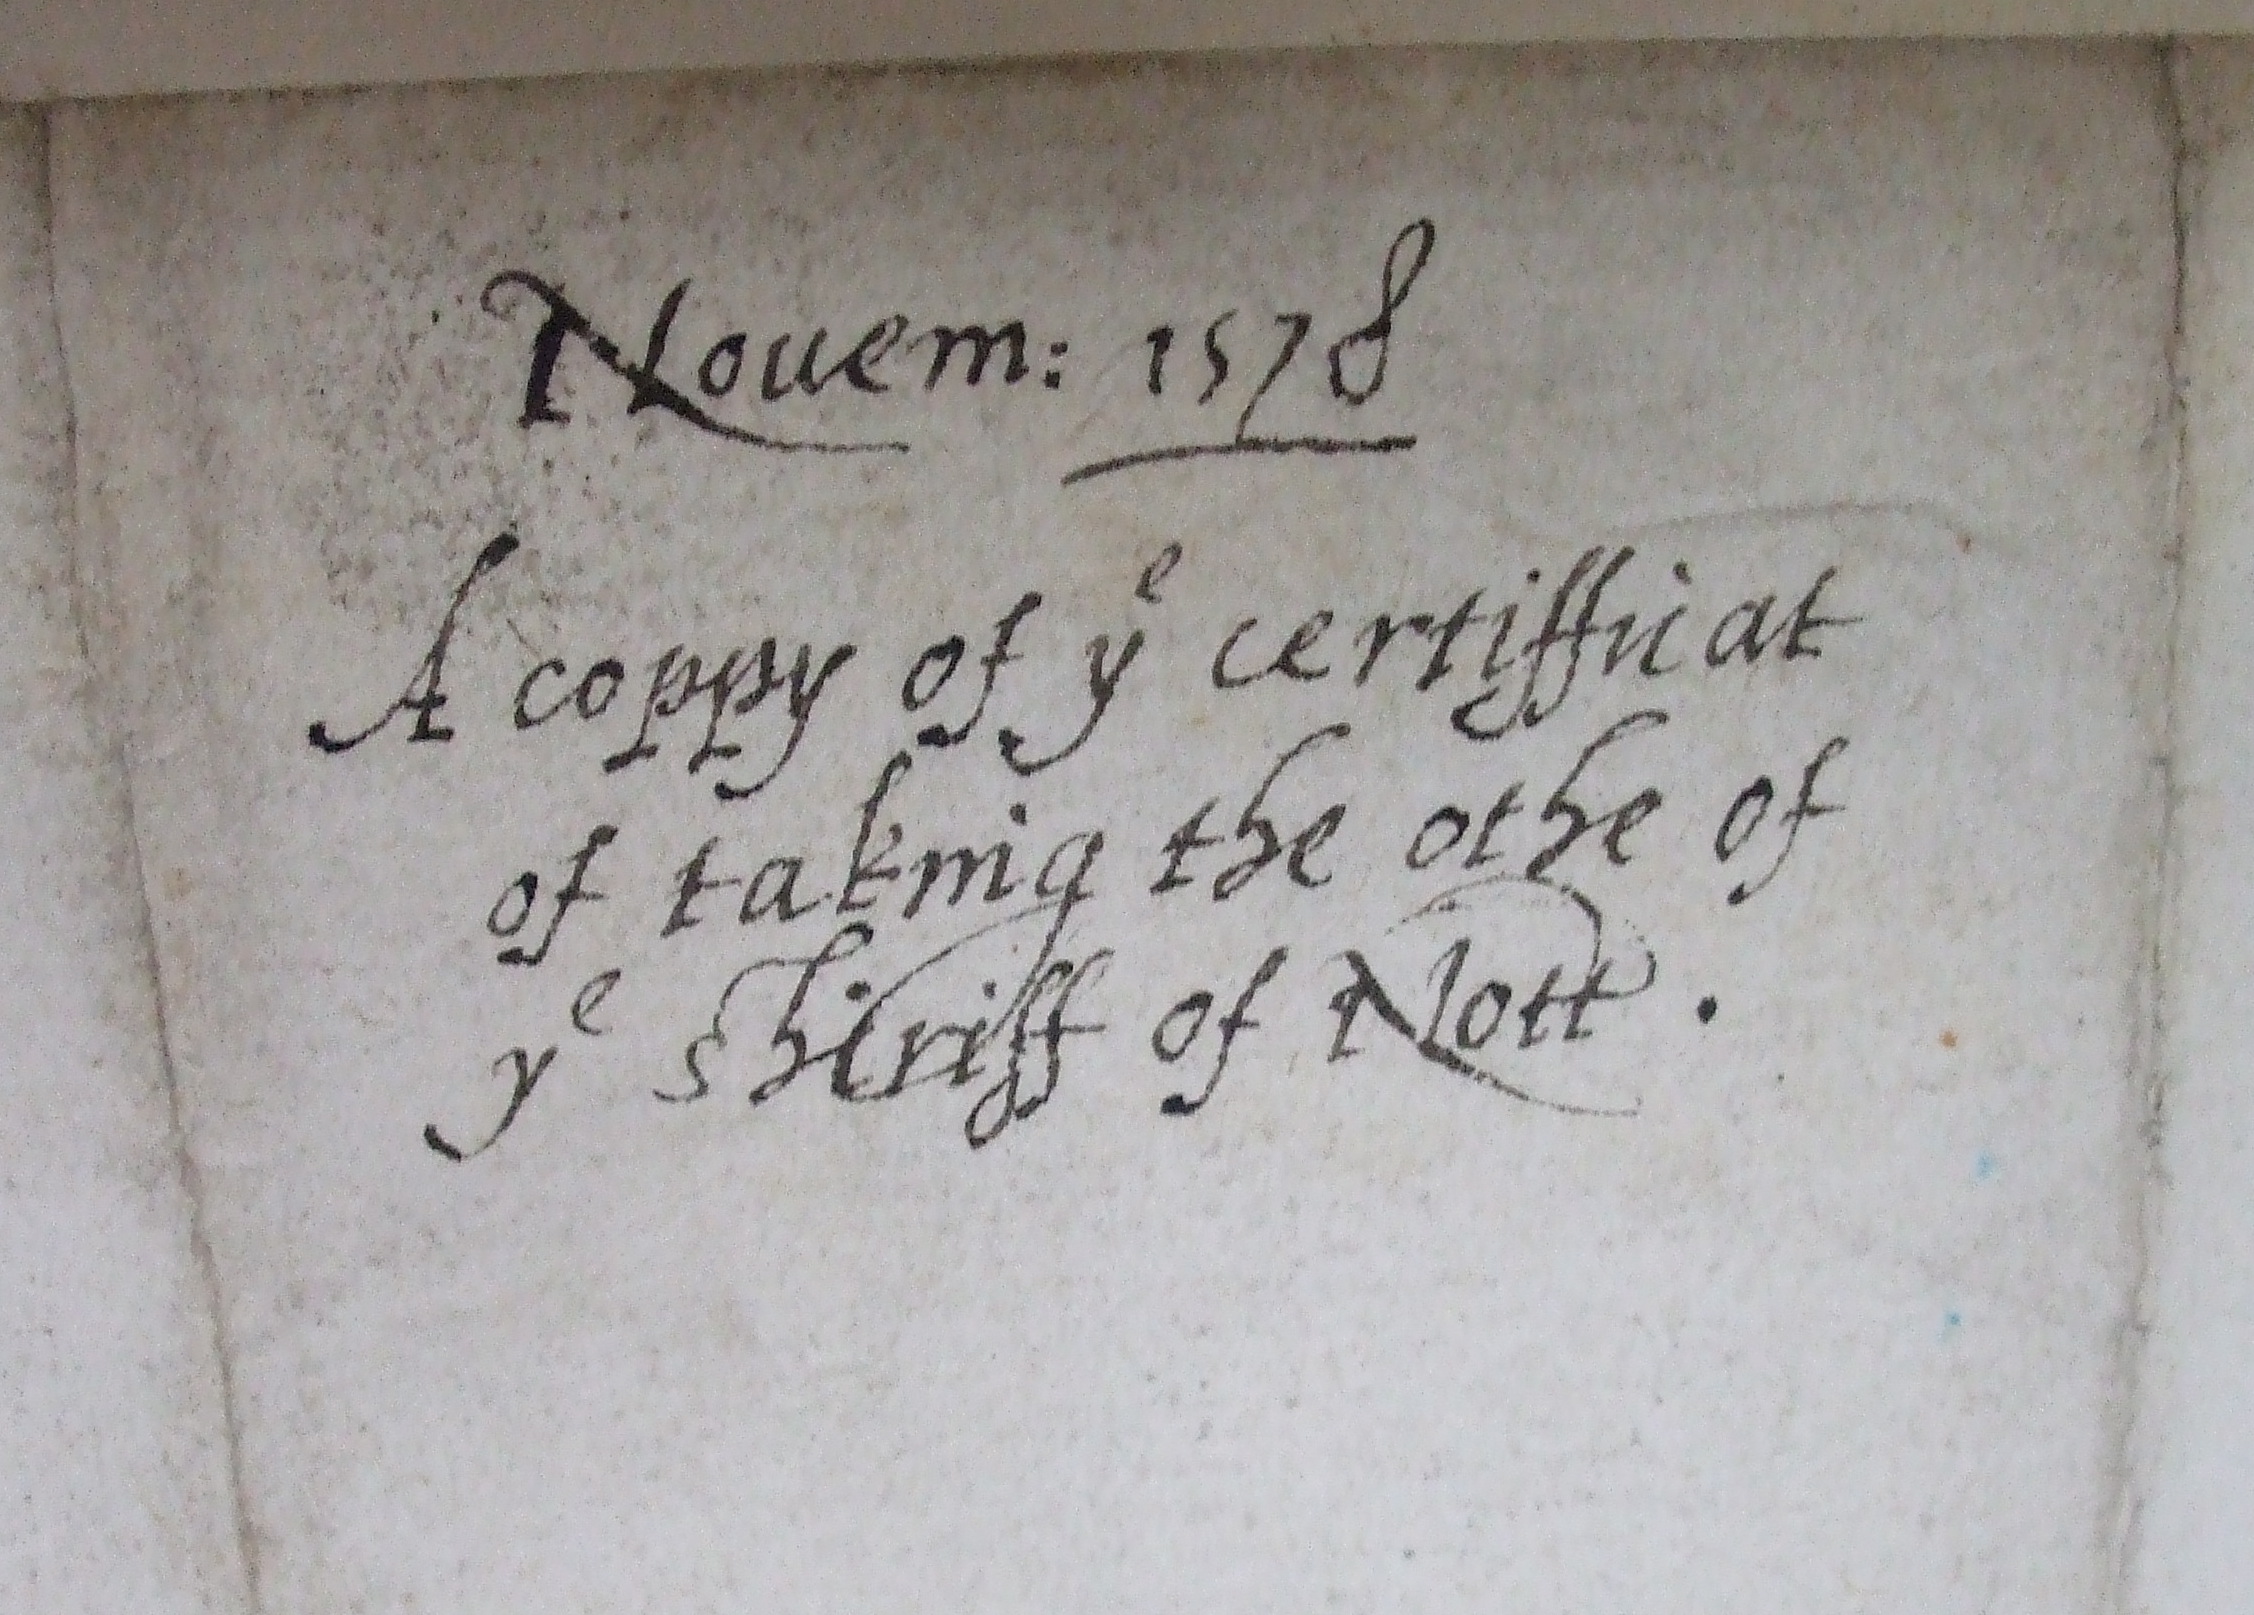 Nouem: 1578
A coppy of yͤ certifficat
of taking the othe of
yͤ shiriff of Nott.